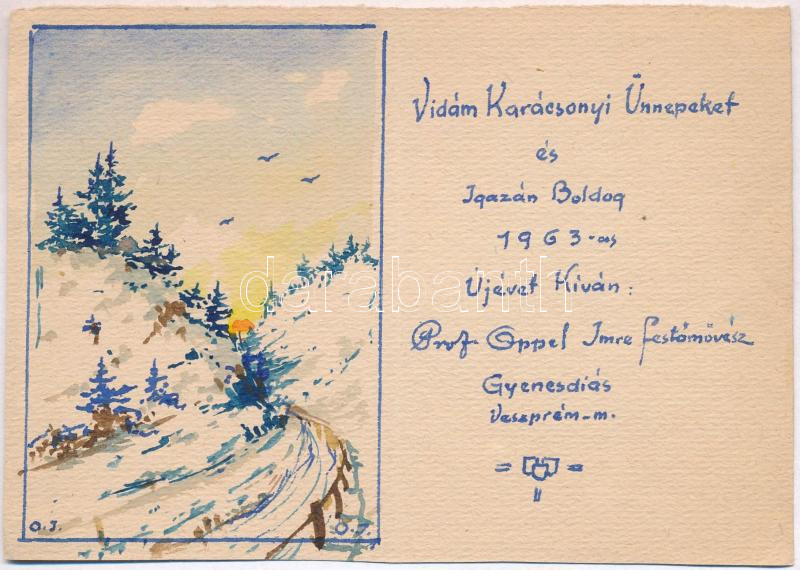 Vidám Karácsonyi Ünnepeket
és
Igazán Boldog
1963-as
Újévet Kíván:
Prof. Oppel Imre festőművész
Gyenesdiás
Veszprém-m.
O.I.
O.I.
darabanth